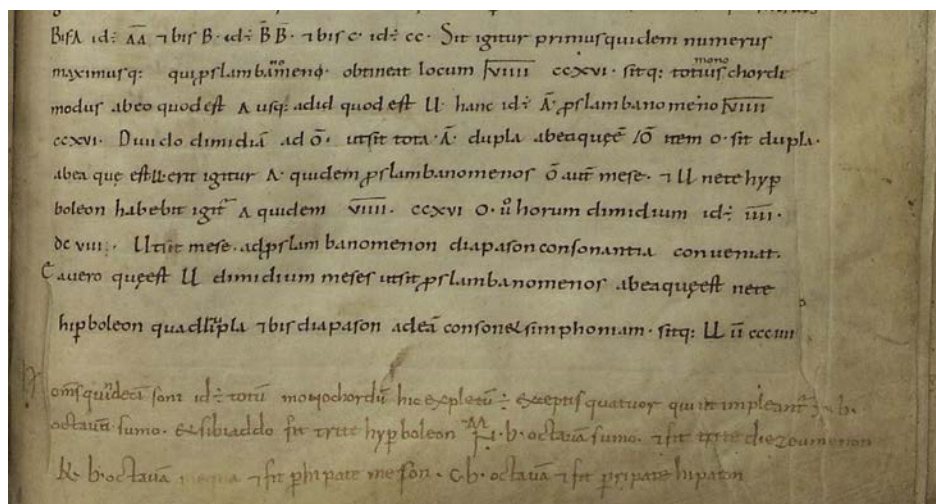 Bis A id ÷ AA ⁊ bis B· id ÷ B̄ B̄· ⁊ bis c· id ÷ cc· Sit igitur primus quidem numerus
maximusq: qui obtineat locum V̅I̅I̅I̅I̅ ccxvi· sitq: totius monochordi
modus ab eo quod est A usq: ad id quod est LL· hanc id ÷ Ā· ꝓslambanomeno V̅I̅I̅I̅I̅
ccxvi· Diuido dimidiā ad ō· ut sit tota ·Ā· dupla ab ea quęē /ō item o· sit dupla·
ab ea quę est LL· erit igitur A· quidem ꝓslambanomenos ō aut̄ mese· ⁊ LL nete hyp̱
boleon habebit igit̄ A quidem v̅i̅i̅i̅i̅· ccxvi o· ů horum dimidium id ÷ i̅i̅i̅i̅·
dc viii· Ut sit mese· ad ꝓslambanomenon diapason consonantia conueniat·
ea uero quę est LL dimidium meses ut sit ꝓslambanomenos ab ea quę est nete
hip̱boleon quadrupla ⁊ bis diapason ad eā consonet simphoniam· sitq: LL īī ccciiii
om̄s quindecī soni id ÷ totū monochordū hic expletū ÷ exceptis quatuor qui ÷ b·
octauā sumo· & sibi addo fit trite hyp̱boleon · b· octauā sumo· ⁊ fit trite diezeumenon
& · b· octauā ⁊ fit p̱hipate meson· c· b· octauā ⁊ fit hipaton